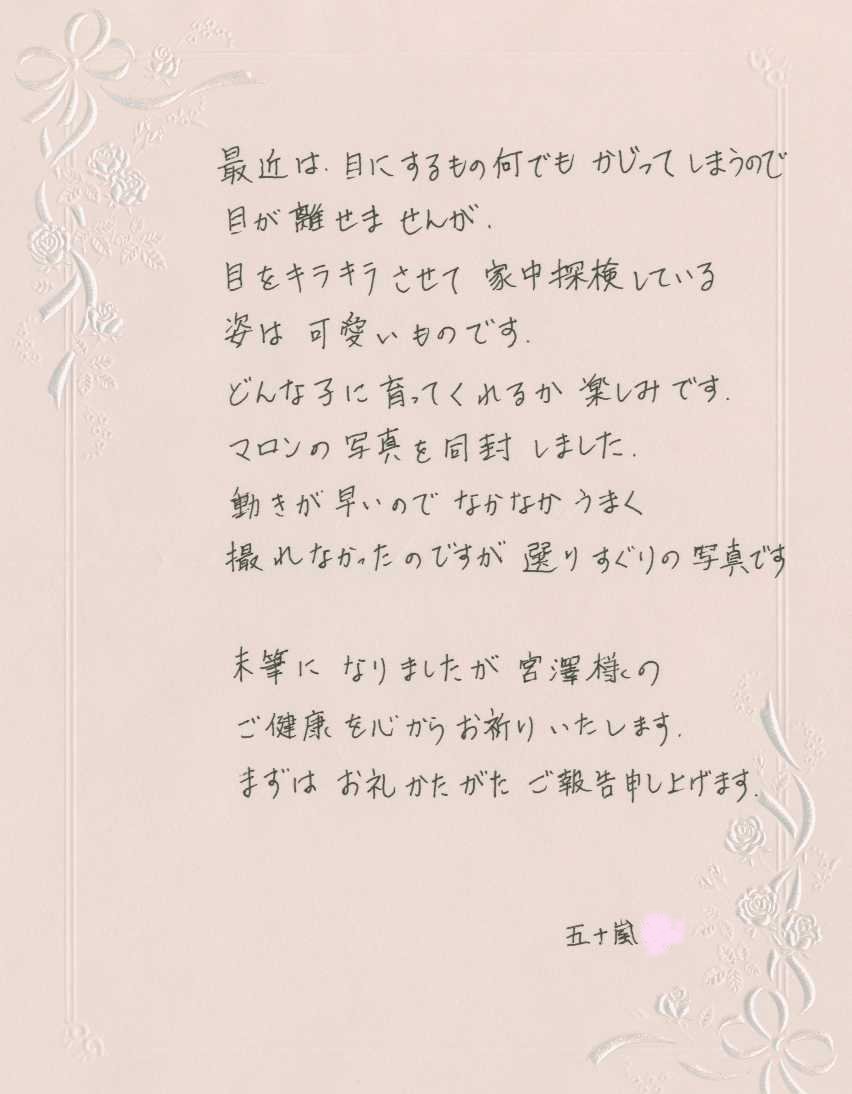 最近は、目にするもの何でも かじって しまうので
目が離せませんが、
目をキラキラさせて 家中探検している
姿は 可愛いものです。
どんな子に育ってくれるか 楽しみです。
マロンの写真を同封しました。
動きが早いので なかなか うまく
撮れなかったのですが 選りすぐりの写真です
末筆に なりましたが 宮澤様の
ご健康を心からお祈りいたします。
まずは お礼かたがた ご報告申し上げます。
五十嵐